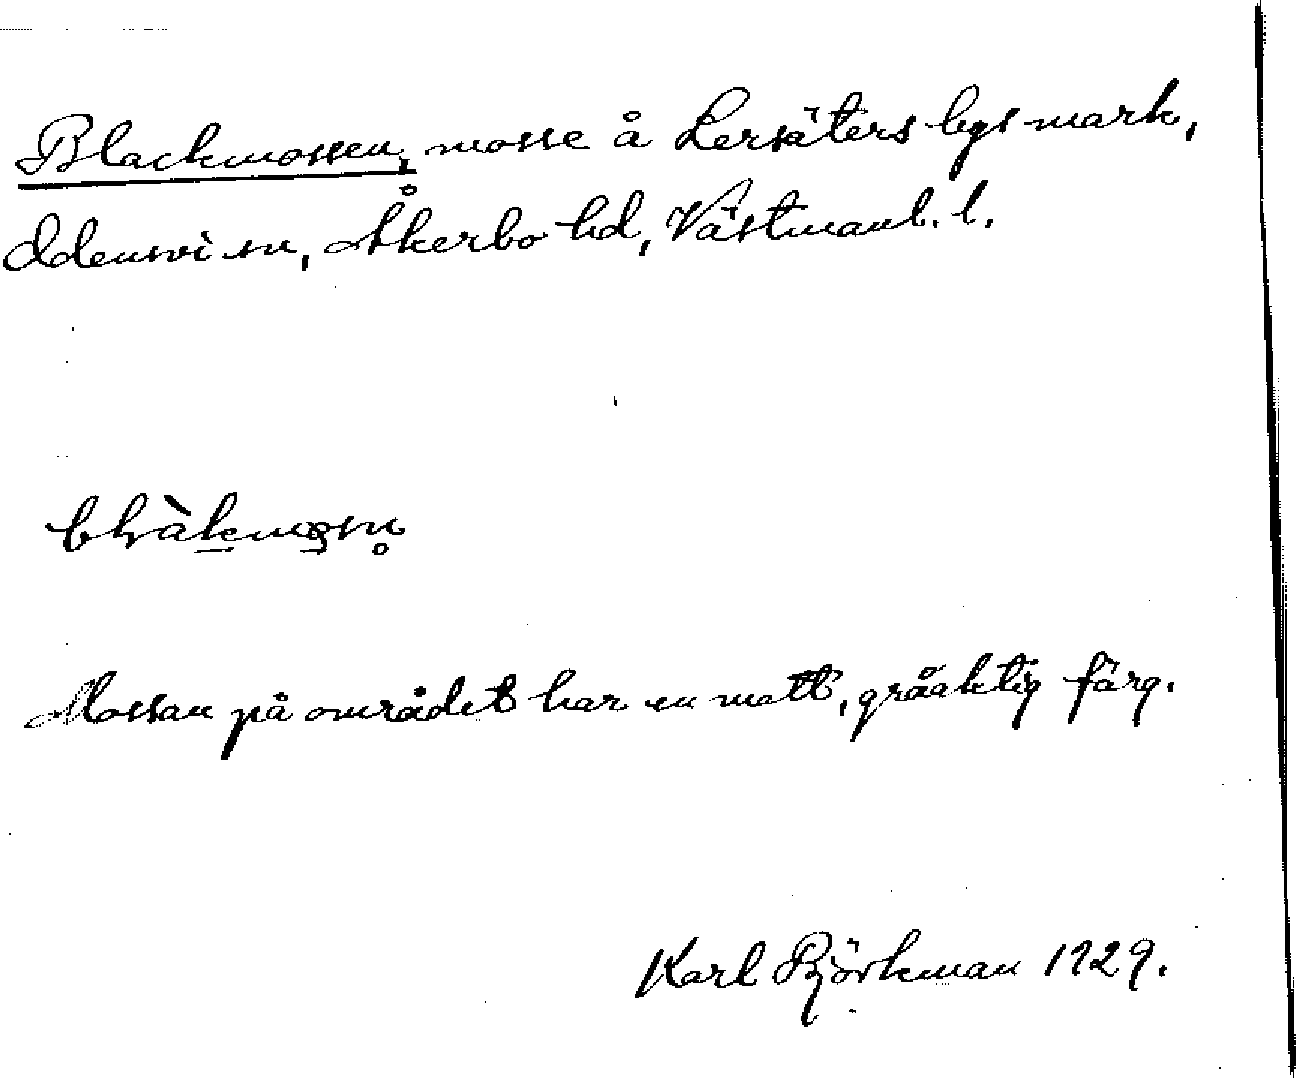 Blackmossen, mosse å Lersäters bys mark,
Odensvi sn, Åkerbo hd, Västmanl. l.
Mossan på området har en matt, gråaktig färg.
Karl Björkman 1929.